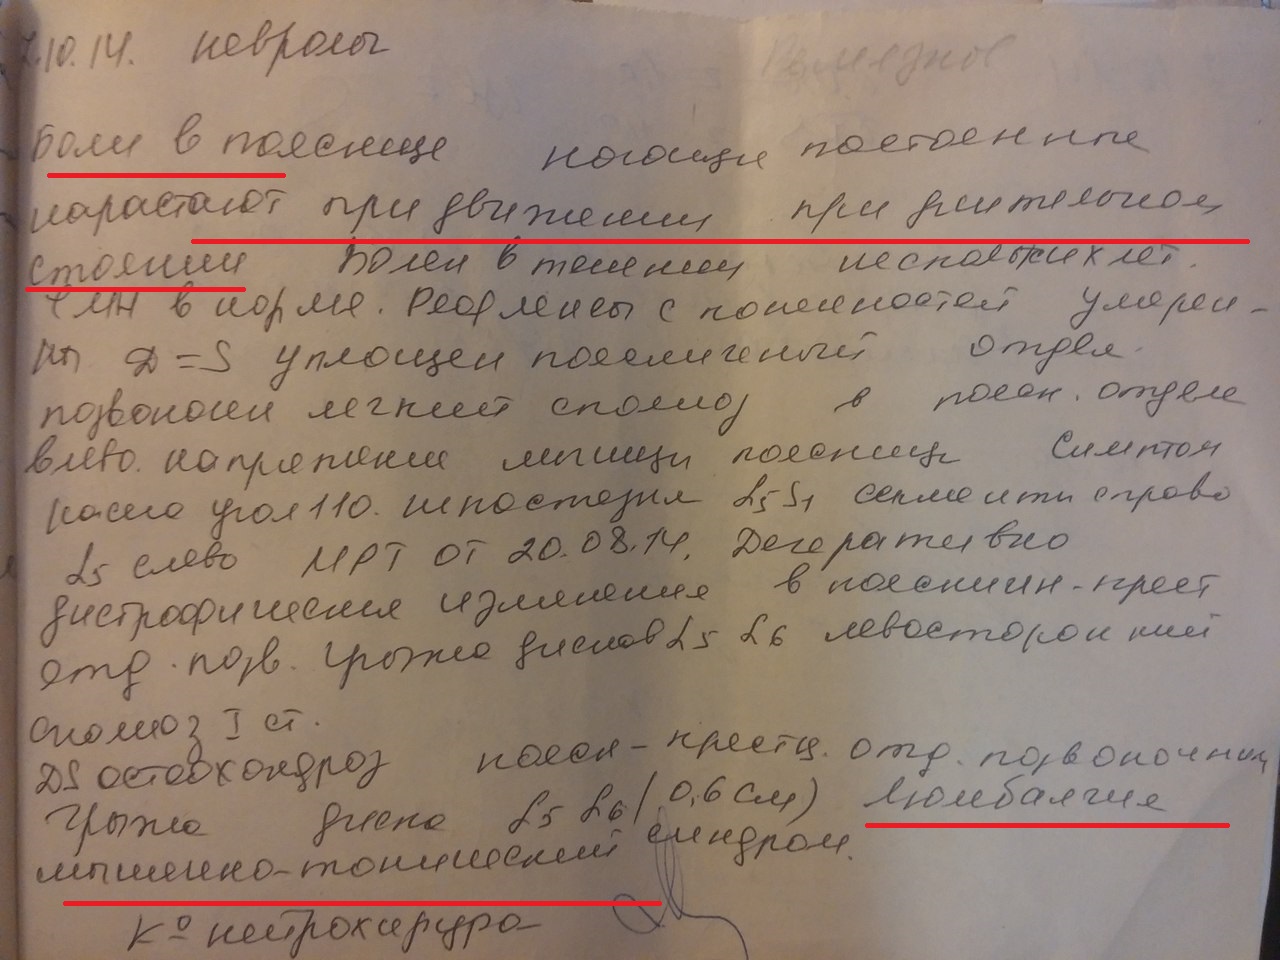 .10.14. невролог
Боли в пояснице ноющие постоянные
нарастают при движении при длительном
стоянии Болен в течении нескольких лет.
ЧМН в норме. Рефлексы с конечностей умерен-
ны D=S уплощен поясничный отдел
позвоночн легкий сколиоз в поясн. отделе
влево. напряжение мышц поясницы Симптом
Ласега угол 110. гипостезия L5 S1 сегменты справо
L5 слево МРТ ОТ 20.08.14. Дегеративно
дистрофические изменения в пояснин-крест
отд. позв. Грыжа дисков L5 L6 левосторонний
сколиоз I ст.
DS остеохондроз поясн-крестц. отд. позвоночник
Грыжа диска L5 L6 (0,6 см) Люмбалгия
мышечно-тонический синдром.
К° нейрохирурга